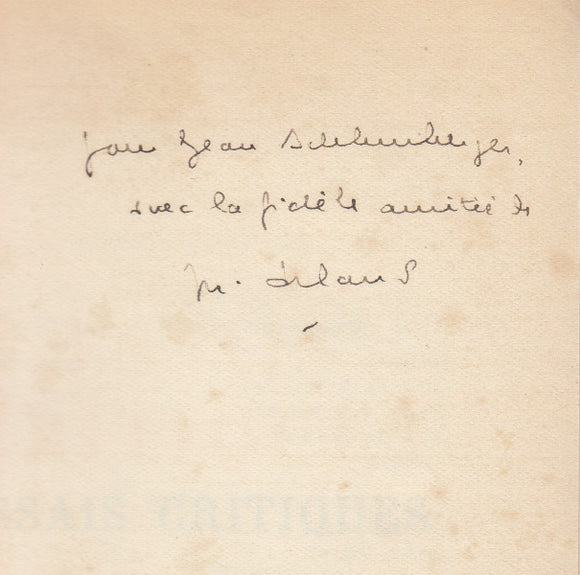 pour Jean Schlumberger,
avec la fidèle amitié de
M. Arland
ESSAIS CRITIQUES